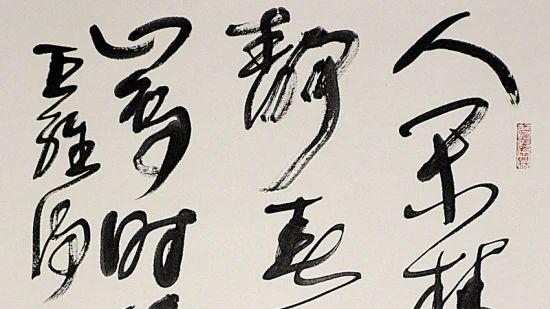 人闲桂
静春
山鸟时
王維